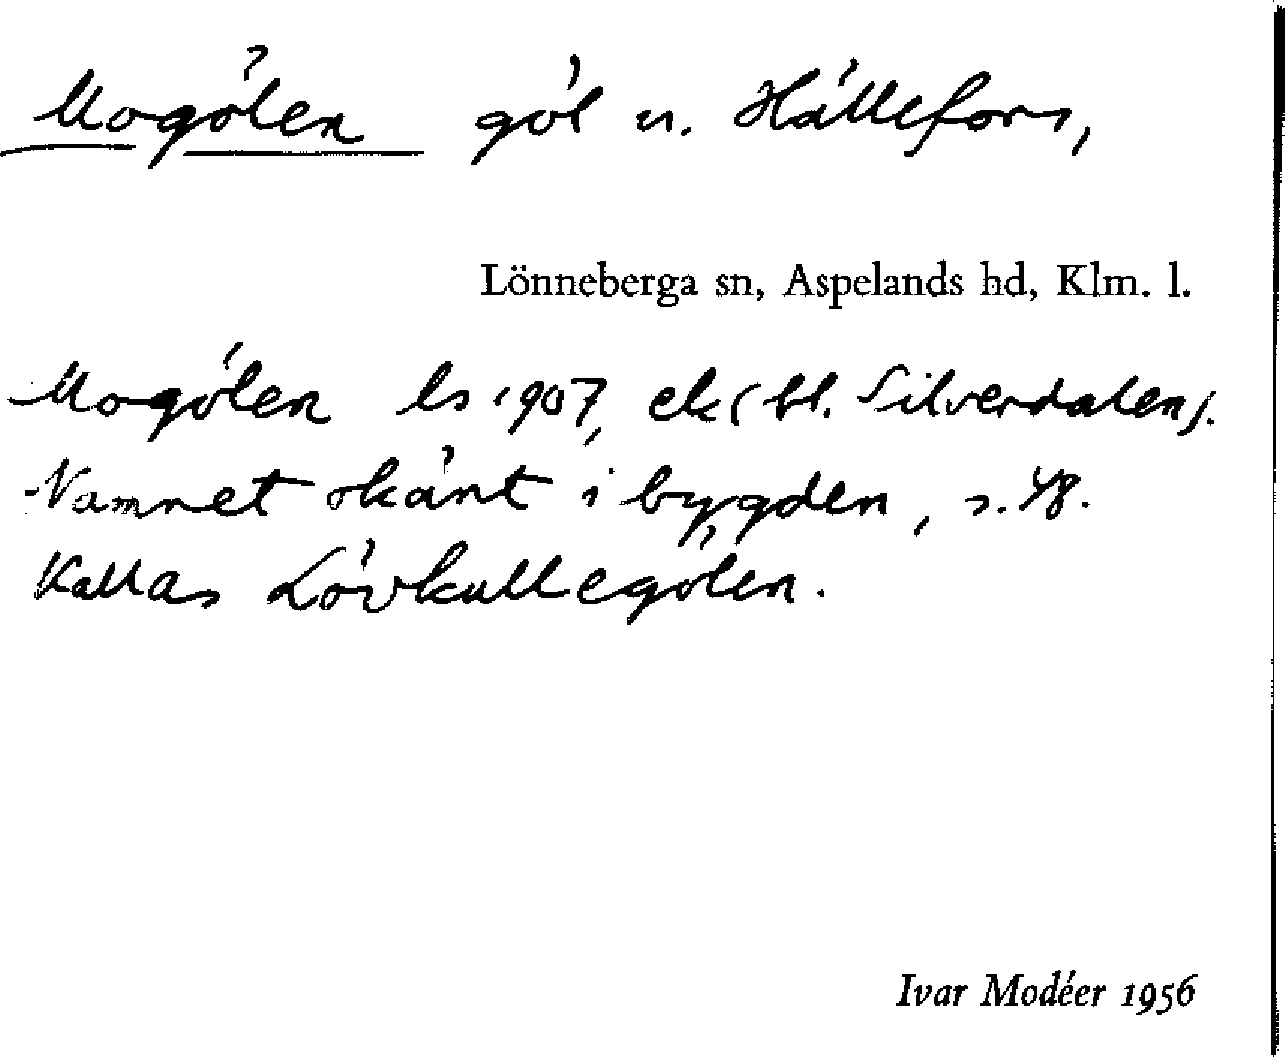 Mogölen göl u. Hällefors,
Lönneberga sn, Aspelands hd, Klm. l.
Mogölen ls 1907, ek (bl. Silverdalen).
Namnet okänt i bygden, s. 48.
Kallas Lövkullegölen.
Ivar Modéer 1956